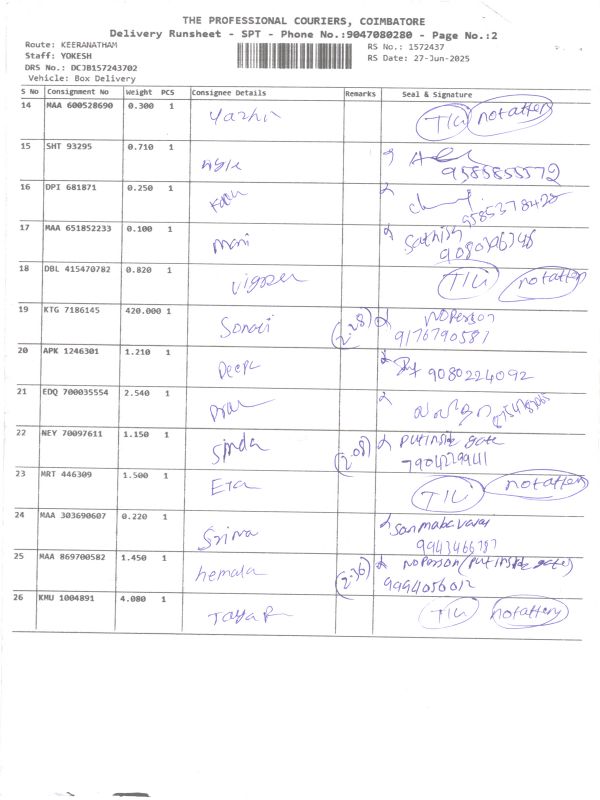 THE PROFESSIONAL COURIERS, COIMBATORE
Delivery Runsheet - SPT - Phone No.:9047080280 - Page No.:2
Route: KEERANATHAM
RS No.: 1572437
Staff: YOKESH
RS Date: 27-Jun-2025
DRS No.: DCJB157243702
Vehicle: Box Delivery
S No Consignment No Weight PCS Consignee Details Remarks Seal & Signature
14 MAA 600528690 0.300 1 Yazhi T/Li not atten
15 SHT 93295 0.710 1 9585855572
16 DPI 681871 0.250 1
17 MAA 651852233 0.100 1 Mani Sathish
18 DBL 415470782 0.820 1 T/Li not atten
19 KTG 7186145 420.000 1 2.28 No Person
9176790587
20 APK 1246301 1.210 1 Deepa 9080224092
21 EDQ 700035554 2.540 1
22 NEY 70097611 1.150 1 2.08 Put Inside gate
7904229941
23 MRT 446309 1.500 1 T/Li not atten
24 MAA 303690607 0.220 1
9943466787
25 MAA 869700582 1.450 1 hemala 2.36 No Person (Put Inside gate)
9994056012
26 KMU 1004891 4.080 1 T/Li not atten